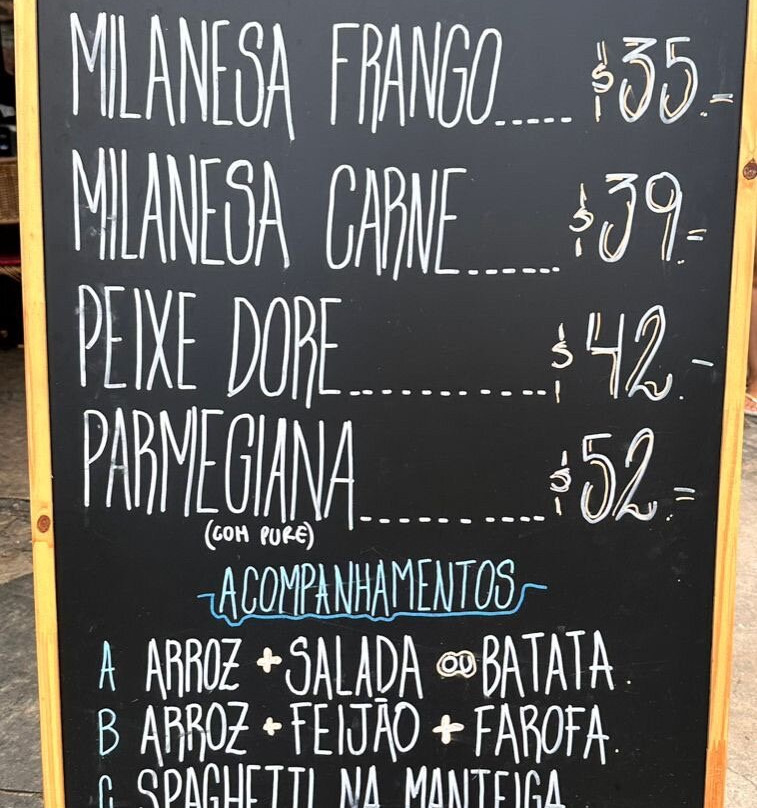 MILANESA FRANGO..... $35.-
MILANESA CARNE...... $39.=
PEIXE DORE........... $42.-
PARMEGIANA.......... $52.=
(COM PURE)
ACOMPANHAMENTOS
A ARROZ + SALADA OU BATATA.
B ARROZ + FEIJÃO + FAROFA.
C SPAGHETTI NA MANTEIGA